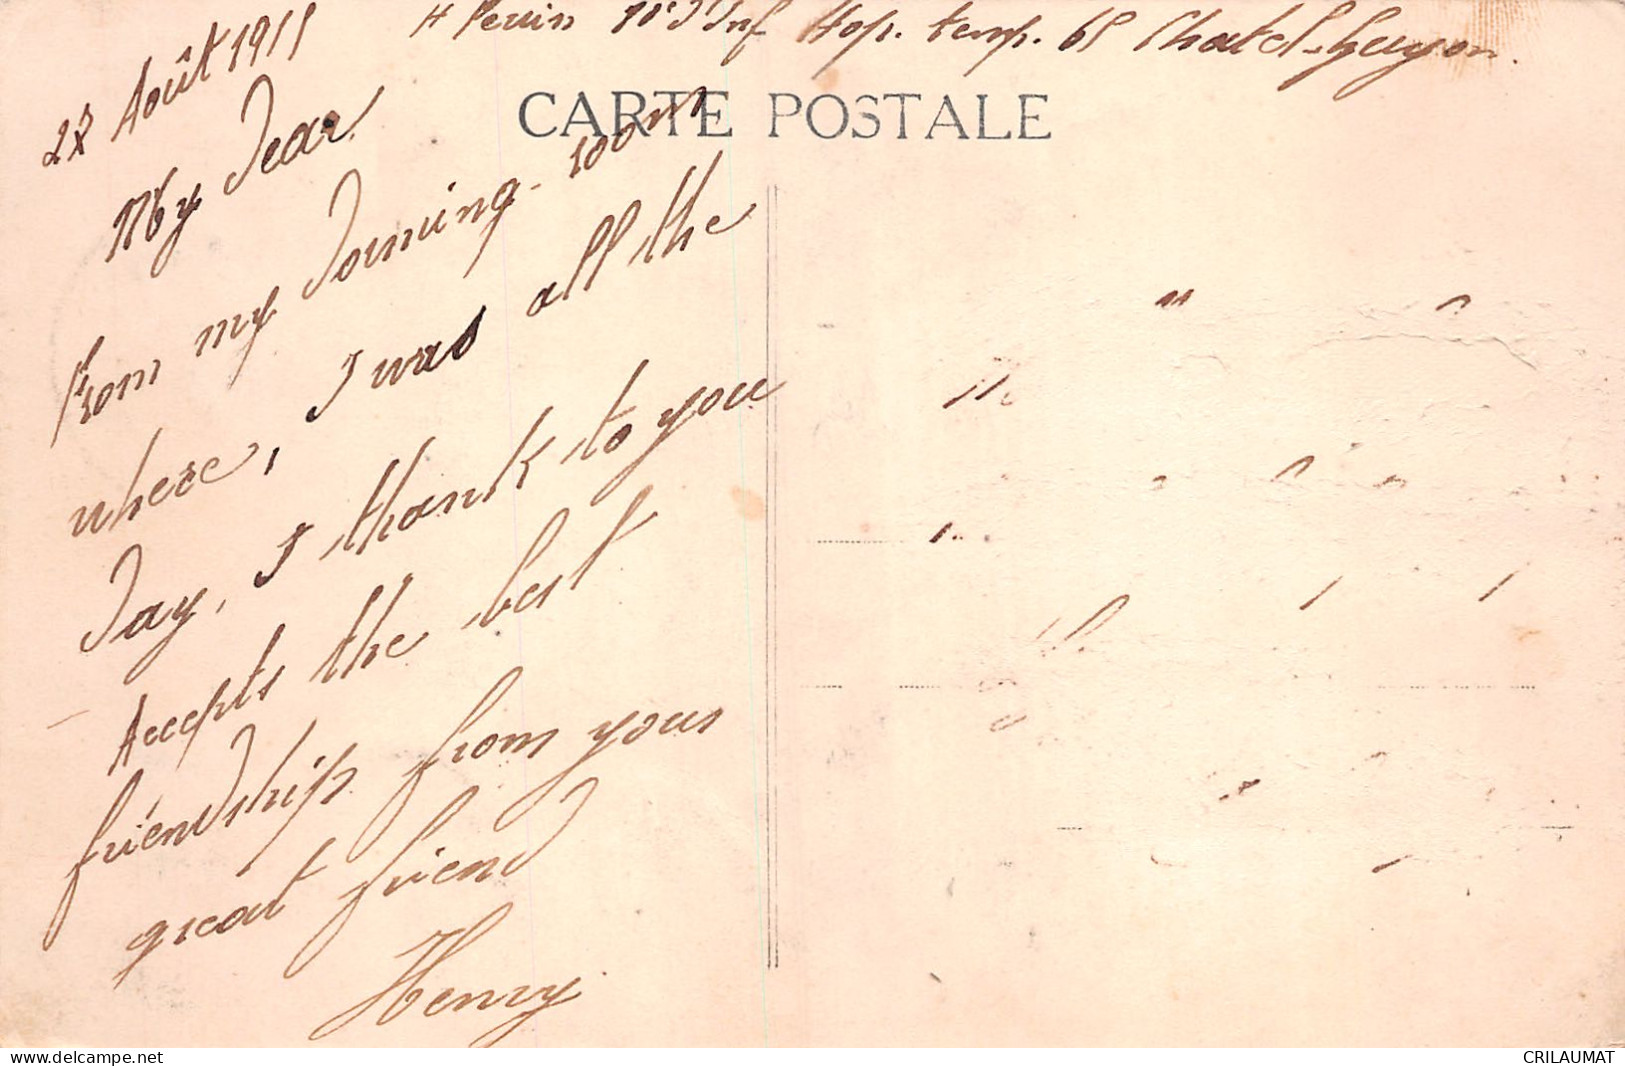 H Perrin 10e d'Inf Hop. temp. 65 Chatel-Guyon.
CARTE POSTALE
22 Août 1915
My dear
From my dorming-room
where, I was all the
day, I thank to you
Accepts the best
friendship from your
great friend
Henry
CRILAUMAT